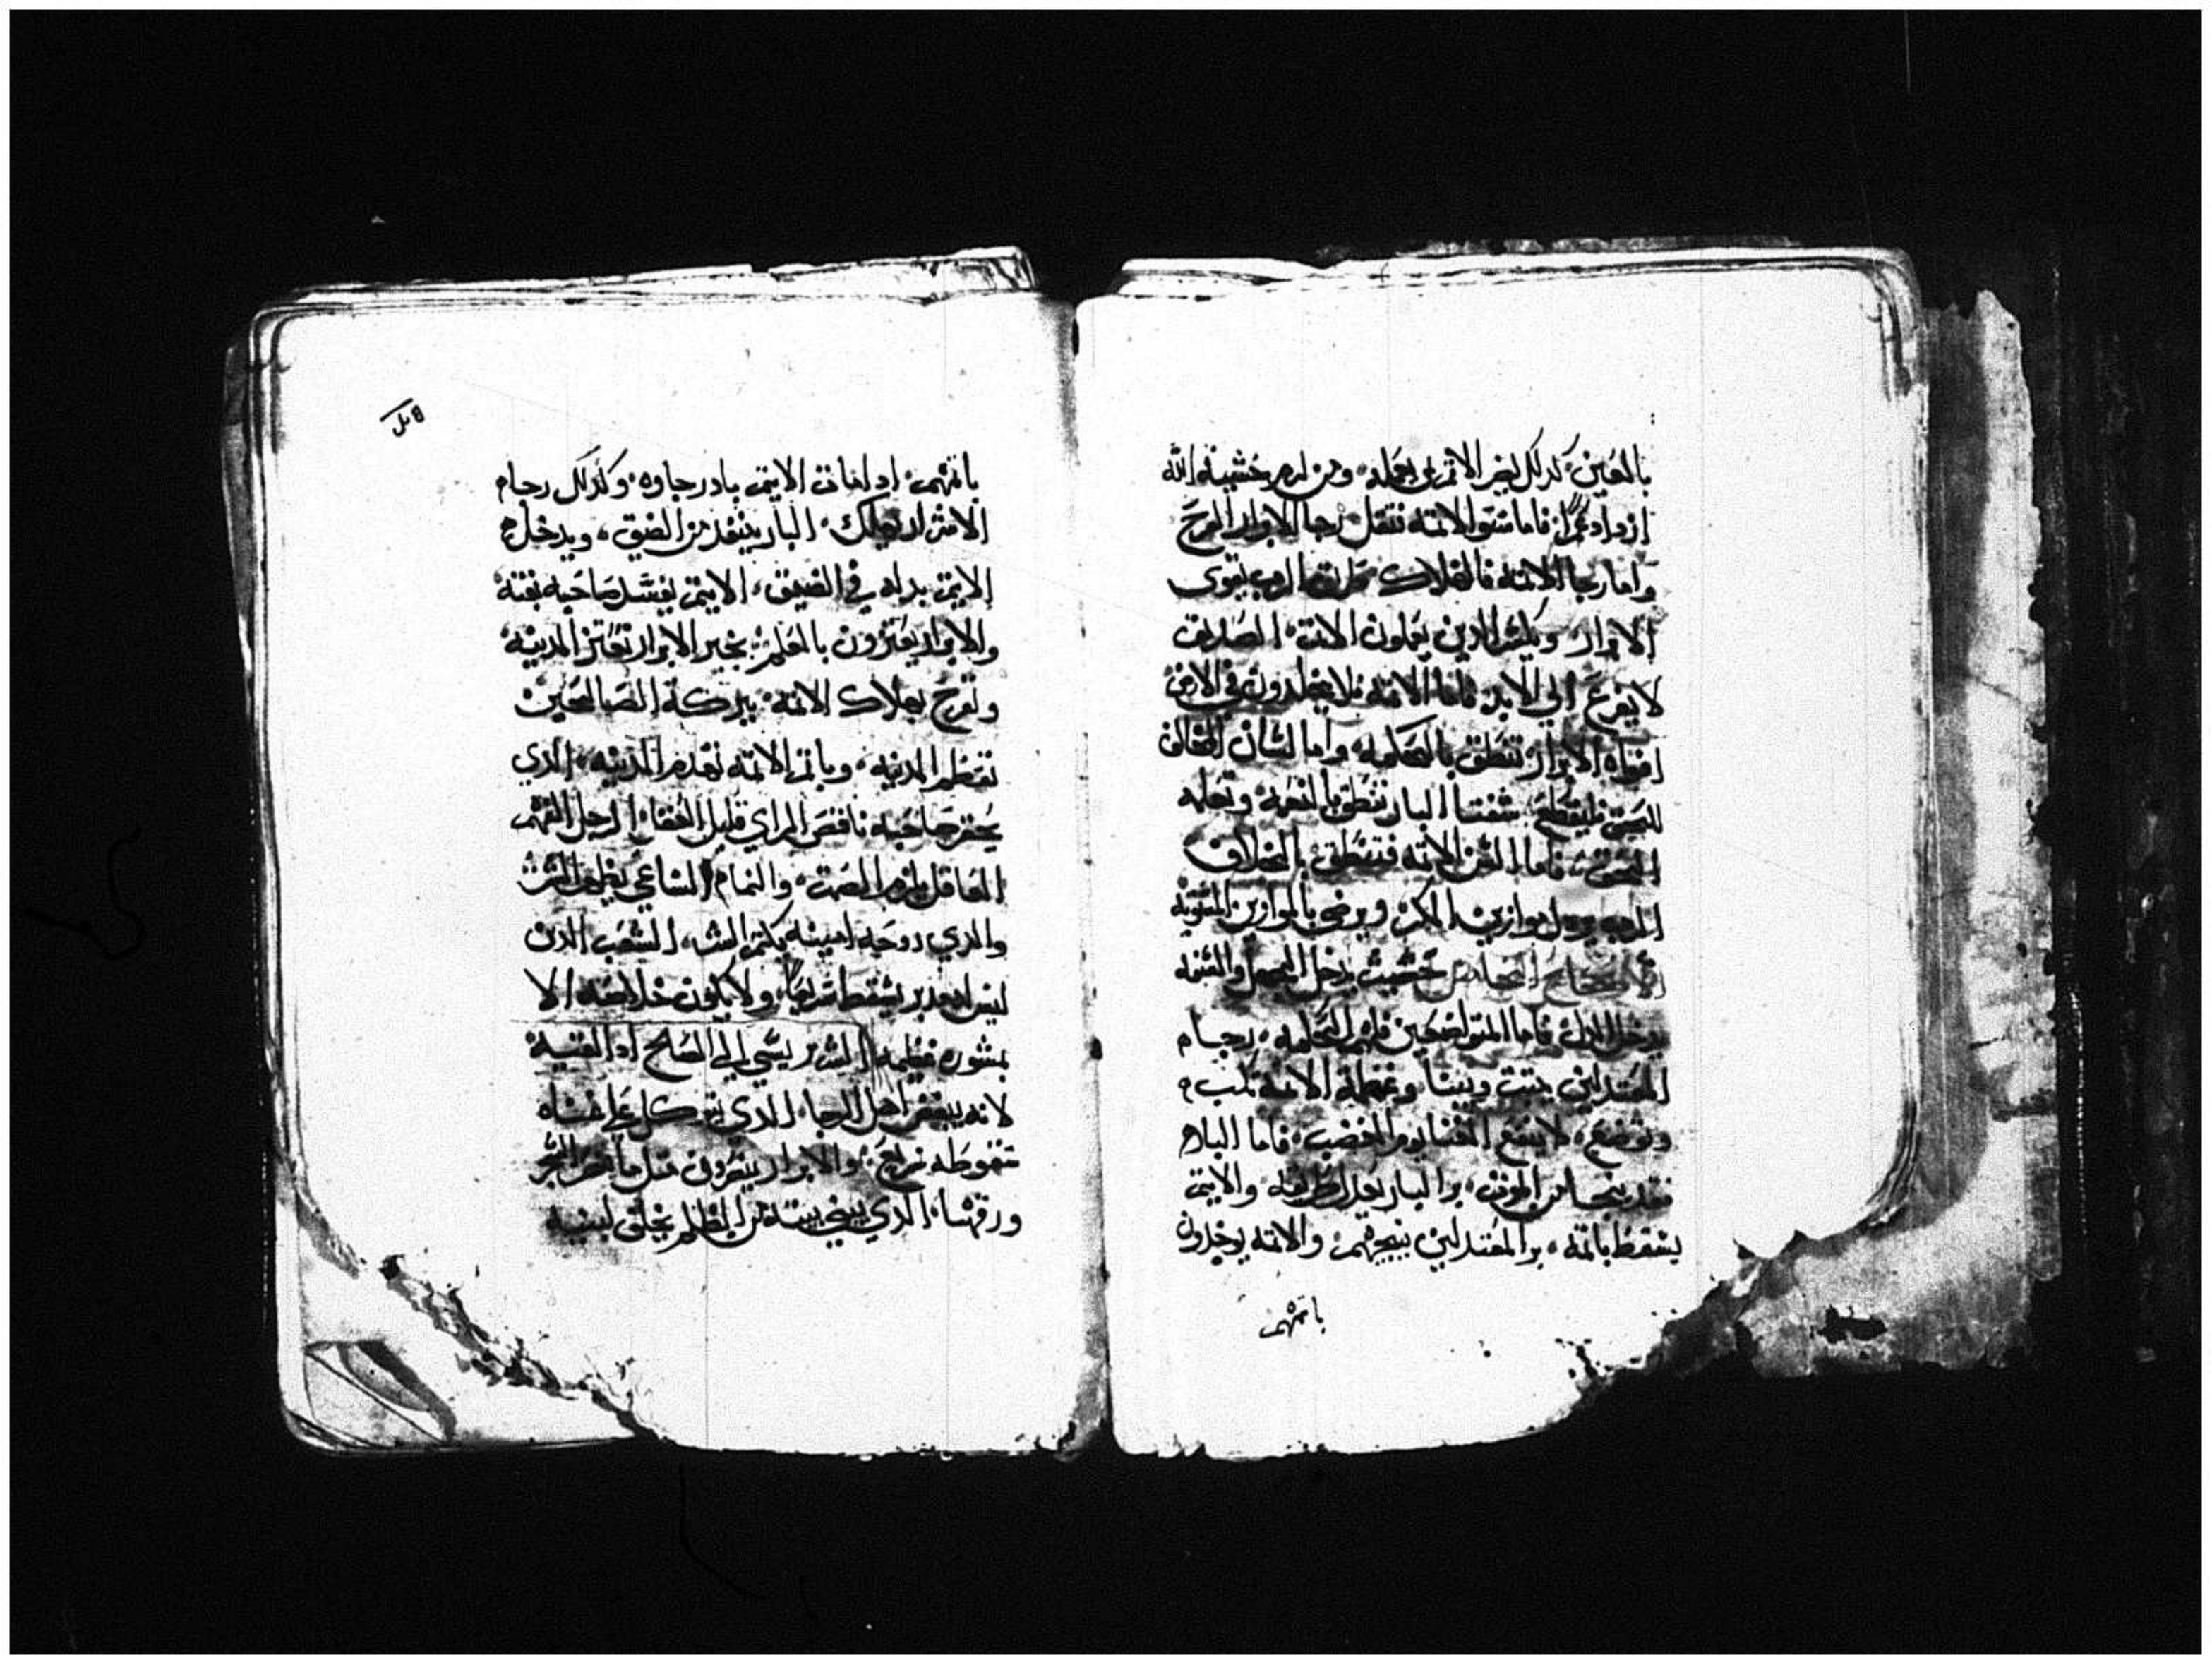 بالعين، كذلك يضر الاثم بعمله، ومن لزم خشية الله
ازداد عمرًا، فاما سنو الاثمه فتقل رجا الابرار الفرح
واما رجا الاثمه فالهلاك طريق الرب تقوي
الابرار، ويكسر الدين يعملون الاثم، الصديق
لا يفزع الي الابد، فاما الاثمه فلا يخلدون في الارض
افواه الابرار تنطق بالحكمه، واما لسان المخالف
للحق فليقطع، شفتا البار تنطق وتعلم
الحق، فاما السن الاثمه فتنطق بالخلاف
الرب يرذل موازين المكر، ويرضي بالموازين المستويه
حيث يدخل الجهل والشتمه
يدخل الذل، فاما المتواضعين فلهم الحكمه، رجا م
المعتدلين يتبت ويبنا وعظمة الاثمه تكب م
وتوضع، لا ينفع الغنا يوم الغضب، فاما البار
فقد ينجيا من الموت، بر البار يعدل طريقه، والاثيم
يسقط باثمه، بر المعتدلين ينجيهم، والاثمه يوخدون
باثمهم
باثمهم، ادا مات الاثيم بادر جاوه، وكذلك رجا م
الاشرار يهلك، البار ينقد من الضيق، ويدخل م
الاثيم بداله في الضيق، الاثيم يفسد صاحبه بفمه
والابرار يعتزون بالعلم، بخير الابرار تعتز المدينه
وتفرح بهلاك الاثمه، ببركة الصالحين
تعظم المدينه، وباثم الاثمه تهدم المدينه، الدي
يحقر صاحبه ناقص الراي قليل العقل، الرجل الفهم
العاقل يلزم الصمت، والنمام الساعي يظهر السر
والدي روحه امينه يكتم السر، الشعب الدي
ليس له مدبر يسقط سريعًا، ولا يكون خلاصه الا
بمشوره عظيمه، الشرير يسي الي الصلح ادا لقيه
لانه يبغض اهل الرجا، الدي يتوكل علي غناه
سقوطه سريع، والابرار ينضرون متل ما ينضر الشجر
ورقها، الدي يبني بيته من الظلم يخلق لبنيه